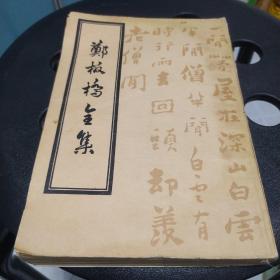 鄭板橋全集
一間茅屋在深山白雲
半間僧半間白雲有
時行雨去回頭却羨
老僧閒